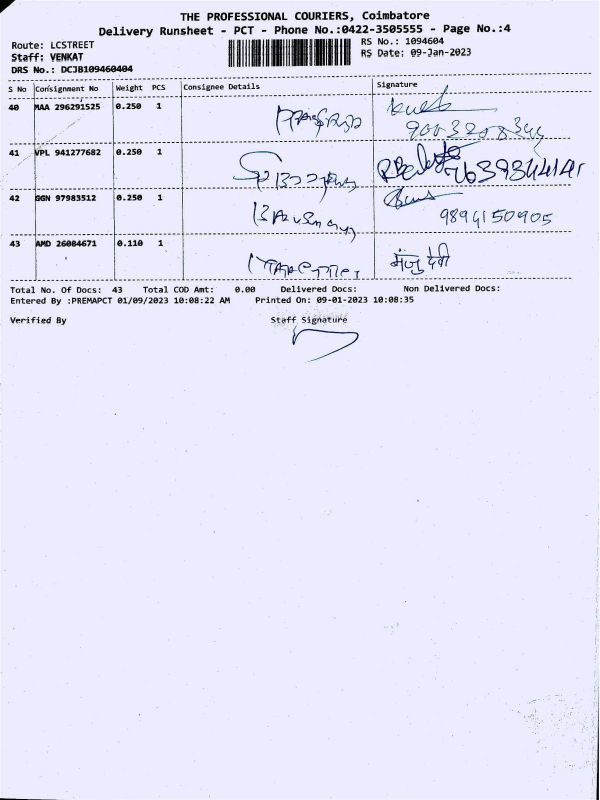 THE PROFESSIONAL COURIERS, Coimbatore
Delivery Runsheet - PCT - Phone No.:0422-3505555 - Page No.:4
Route: LCSTREET
RS No.: 1094604
Staff: VENKAT
RS Date: 09-Jan-2023
DRS No.: DCJB109460404
S No Consignment No Weight PCS Consignee Details Signature
40 MAA 296291525 0.250 1
41 VPL 941277682 0.250 1
42 GGN 97983512 0.250 1
9894150905
43 AMD 26084671 0.110 1 मंजु देवी
Total No. Of Docs: 43 Total COD Amt: 0.00 Delivered Docs: Non Delivered Docs:
Entered By :PREMAPCT 01/09/2023 10:08:22 AM Printed On: 09-01-2023 10:08:35
Verified By Staff Signature